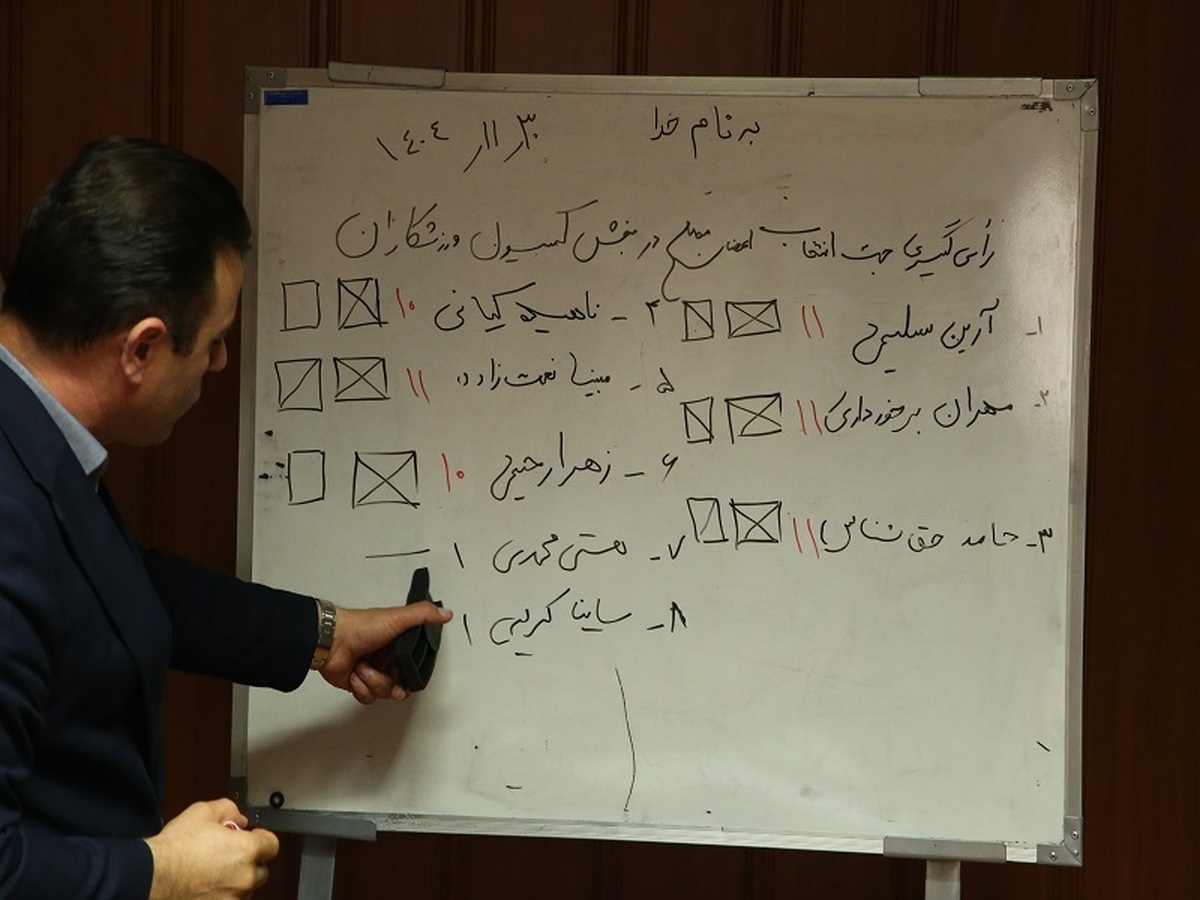 به نام خدا ۱۴۰۴ / ۱۱ / ۳۰
رأی گیری جهت انتخاب اعضای مجمع در بخش کمسیون ورزشکاران
۱- آرین سلیمی ۱۱
۲- مهران برخورداری ۱۱
۳- حامد حق شناس ۱۱
۴- ناهید کیانی ۱۰
۵- مبینا نعمت زاده ۱۱
۶- زهرا رحیمی ۱۰
۷- هستی محمدی ۱
۸- ساینا کریمی ۱